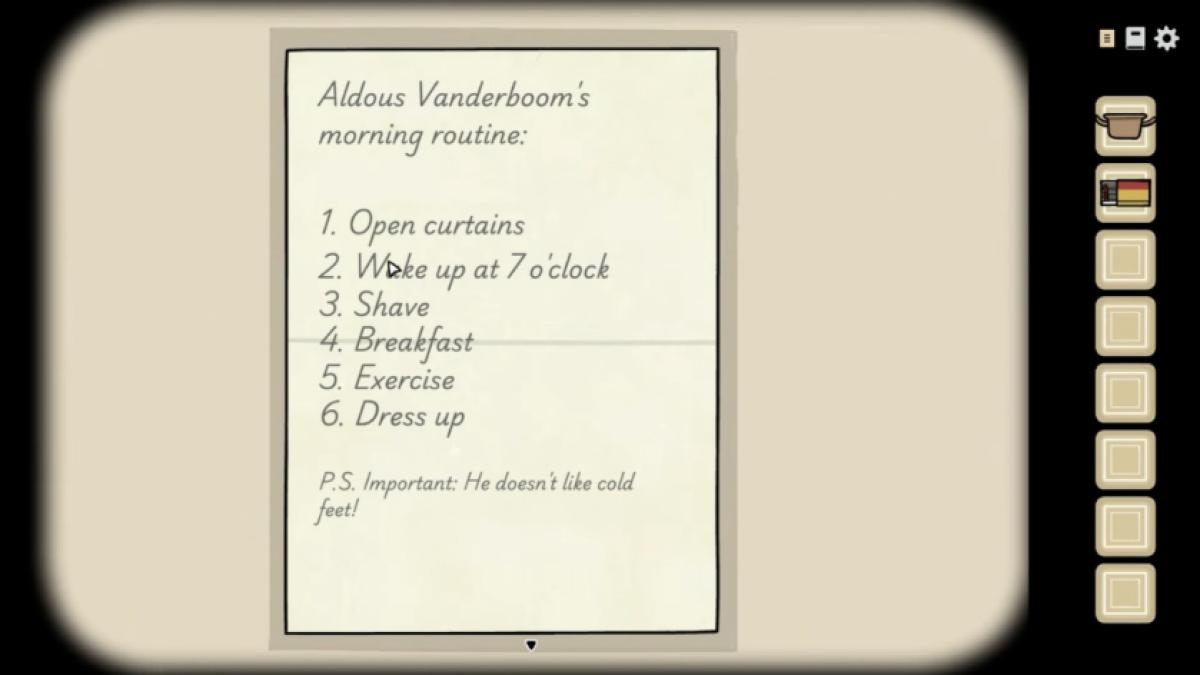 Aldous Vanderboom's
morning routine:
1. Open curtains
2. Wake up at 7 o'clock
3. Shave
4. Breakfast
5. Exercise
6. Dress up
P.S. Important: He doesn't like cold
feet!